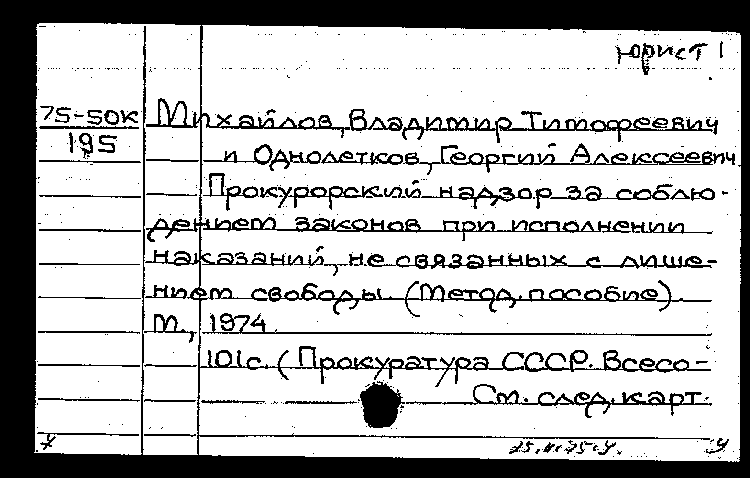 юрист 1
75-50к
195
Михайлов, Владимир Тимофеевич
и Однолетков, Георгий Алексеевич
Прокурорский надзор за соблю-
дением законов при исполнении
наказаний, не связанных с лише-
нием свободы. (Метод. пособие).
М., 1974.
101с. (Прокуратура СССР. Всесо-
См. след. карт.